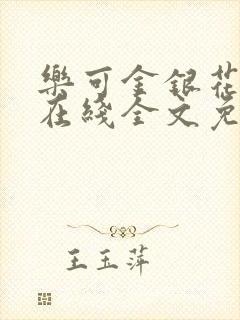 樂可金銀花
在綫全文免
王玉萍